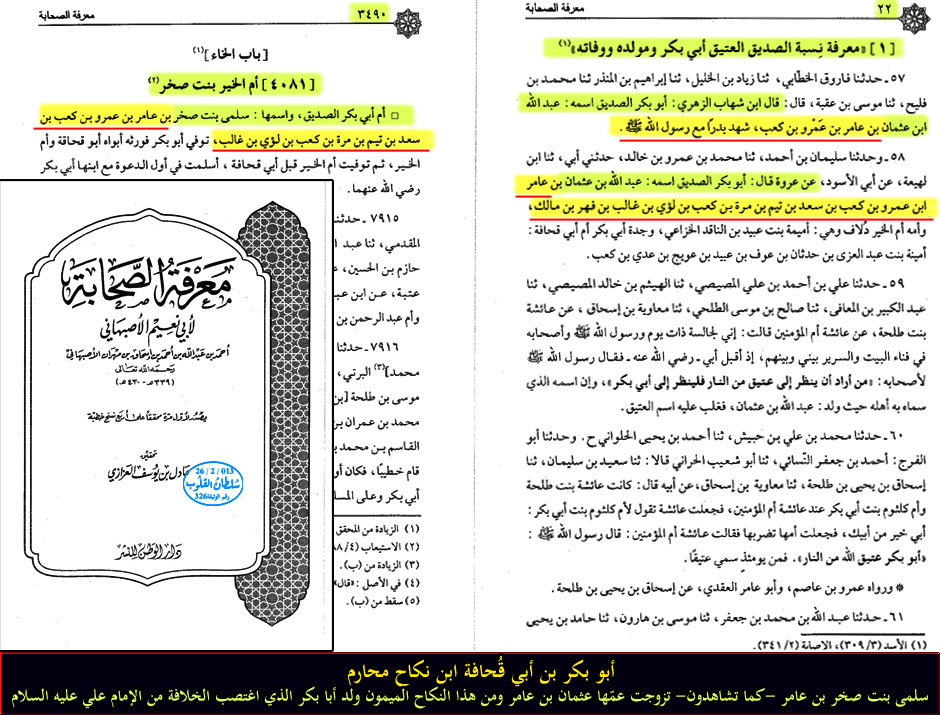 ٢٢
معرفة الصحابة
[ ١ ] «معرفة نِسبة الصديق العتيق أبي بكر ومولده ووفاته»(١)
٥٧ ـ حدثنا فاروق الخطابي، ثنا زياد بن الخليل، ثنا إبراهيم بن المنذر ثنا محمد بن
فليح، ثنا موسى بن عقبة، قال: قال ابن شهاب الزهري: أبو بكر الصديق اسمه: عبد الله
ابن عثمان بن عامر بن عَمْرو بن كعب، شهد بدرًا مع رسول الله ﷺ.
٥٨ ـ وحدثنا سليمان بن أحمد، ثنا محمد بن عمرو بن خالد، حدثني أبي، ثنا ابن
لهيعة، عن أبي الأسود، عن عروة قال: أبو بكر الصديق اسمه: عبد الله بن عثمان بن عامر
ابن عمرو بن كعب بن سعد بن تيم بن مرة بن كعب بن لؤي بن غالب بن فهر بن مالك،
وأمه أم الخير دُلاف وهي: أميمة بنت عبيد بن الناقد الخزاعي، وجدة أبي بكر أم أبي قحافة:
أمينة بنت عبد العزى بن حدثان بن عوف بن عبيد بن عويج بن عدي بن كعب.
٥٩ ـ حدثنا علي بن أحمد بن علي المصيصي، ثنا الهيثم بن خالد المصيصي، ثنا
عبد الكبير بن المعافى، ثنا صالح بن موسى الطلحي، ثنا معاوية بن إسحاق، عن عائشة
بنت طلحة، عن عائشة أم المؤمنين قالت: إني لجالسة ذات يوم ورسول الله ﷺ وأصحابه
في فناء البيت والسرير بيني وبينهم، إذ أقبل أبي ـ رضي الله عنه ـ فقال رسول الله ﷺ
لأصحابه: «من أراد أن ينظر إلى عتيق من النار فلينظر إلى أبي بكر»، وإن اسمه الذي
سماه به أهله حيث ولد: عبد الله بن عثمان، فغلب عليه اسم العتيق.
٦٠ ـ حدثنا محمد بن علي بن حبيش، ثنا أحمد بن يحيى الحلواني ح. وحدثنا أبو
الفرج: أحمد بن جعفر النّسائي، ثنا أبو شعيب الحراني قالا: ثنا سعيد بن سليمان، ثنا
إسحاق بن يحيى بن طلحة، ثنا معاوية بن إسحاق، عن أبيه قال: كانت عائشة بنت طلحة
وأم كلثوم بنت أبي بكر عند عائشة أم المؤمنين، فجعلت عائشة تقول لأم كلثوم بنت أبي بكر:
أبي خير من أبيك، فجعلت أمها تضربها فقالت عائشة أم المؤمنين: قال رسول الله ﷺ :
«أبو بكر عتيق الله من النار». فمن يومئذ سمي عتيقًا.
* ورواه عمرو بن عاصم، وأبو عامر العقدي، عن إسحاق بن يحيى بن طلحة.
٦١ ـ حدثنا عبد الله بن محمد بن جعفر، ثنا موسى بن هارون، ثنا حامد بن يحيى
(١) الأسد (٣٠٩/٣)، الاصابة (٣٤١/٢).
٣٤٩٠
معرفة الصحابة
[باب الخاء](١)
[ ٤٠٨١ ] أم الخير بنت صخر(٢)
□ أم أبي بكر الصديق، واسمها: سلمى بنت صخر بن عامر بن عمرو بن كعب بن
سعد بن تيم بن مرة بن كعب بن لؤي بن غالب، توفي أبو بكر فورثه أبواه أبو قحافة وأم
الخير، ثم توفيت أم الخير قبل أبي قحافة، أسلمت في أول الدعوة مع ابنها أبي بكر
رضي الله عنهما.
٧٩١٥ ـ حدثنا
المقدمي، ثنا عبد ا
حازم بن الحسين، ع
عتبة، عن ابن عبـ
وأم عبد الرحمن بن
٧٩١٦ ـ حدثنا
محمد](٣) البرتي،
موسى بن طلحة [بن
محمد بن عمران بن
القاسم بن محمد بـ
قام خطيبًا، فكان أو
أبي بكر وعلى المسل
(١) الزيادة من المحقق
(٢) الاستيعاب (٤/ ٨٨
(٣) الزيادة من (ب).
(٤) في الأصل: «قال»
(٥) سقط من (ب).
معرفة الصحابة
لأبي نعيم الأصبهاني
أحمد بن عبد الله بن أحمد بن إسحاق بن مهران الأصبهاني
رحمه الله تعالى
(٣٣٦هـ - ٤٣٠هـ)
يصدر لأول مرة محققاً على أربع نسخ خطية
تحقيق
عادل بن يوسف العزازي
26 / 2 / 013
سلطان القلوب
رقم الوثيقة 326
دار الوطن للنشر
أبو بكر بن أبي قُحافة ابن نكاح محارم
سلمى بنت صخر بن عامر –كما تشاهدون– تزوجت عمّها عثمان بن عامر ومن هذا النكاح الميمون ولد أبا بكر الذي اغتصب الخلافة من الإمام علي عليه السلام